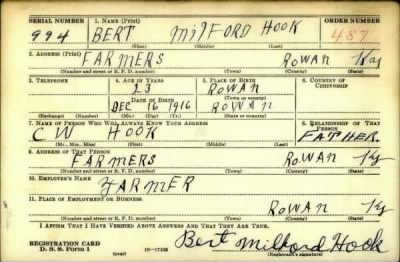 SERIAL NUMBER 1. NAME (Print) ORDER NUMBER
994 BERT MILFORD HOOK 487
(First) (Middle) (Last)
2. ADDRESS (Print)
FARMERS ROWAN Ky
(Number and street or R. F. D. number) (Town) (County) (State)
3. TELEPHONE 4. AGE IN YEARS 5. PLACE OF BIRTH 6. COUNTRY OF CITIZENSHIP
23 ROWAN
DATE OF BIRTH (Town or county)
DEC 16 1916 ROWAN
(Exchange) (Number) (Mo.) (Day) (Yr.) (State or country)
7. NAME OF PERSON WHO WILL ALWAYS KNOW YOUR ADDRESS 8. RELATIONSHIP OF THAT PERSON
C W HOOK FATHER
(Mr., Mrs., Miss) (First) (Middle) (Last)
9. ADDRESS OF THAT PERSON
FARMERS ROWAN Ky
(Number and street or R. F. D. number) (Town) (County) (State)
10. EMPLOYER'S NAME
FARMER
11. PLACE OF EMPLOYMENT OR BUSINESS
ROWAN Ky
(Number and street or R. F. D. number) (Town) (County) (State)
I AFFIRM THAT I HAVE VERIFIED ABOVE ANSWERS AND THAT THEY ARE TRUE.
REGISTRATION CARD Bert Milford Hook
D. S. S. Form 1 (over) (Registrant's signature)